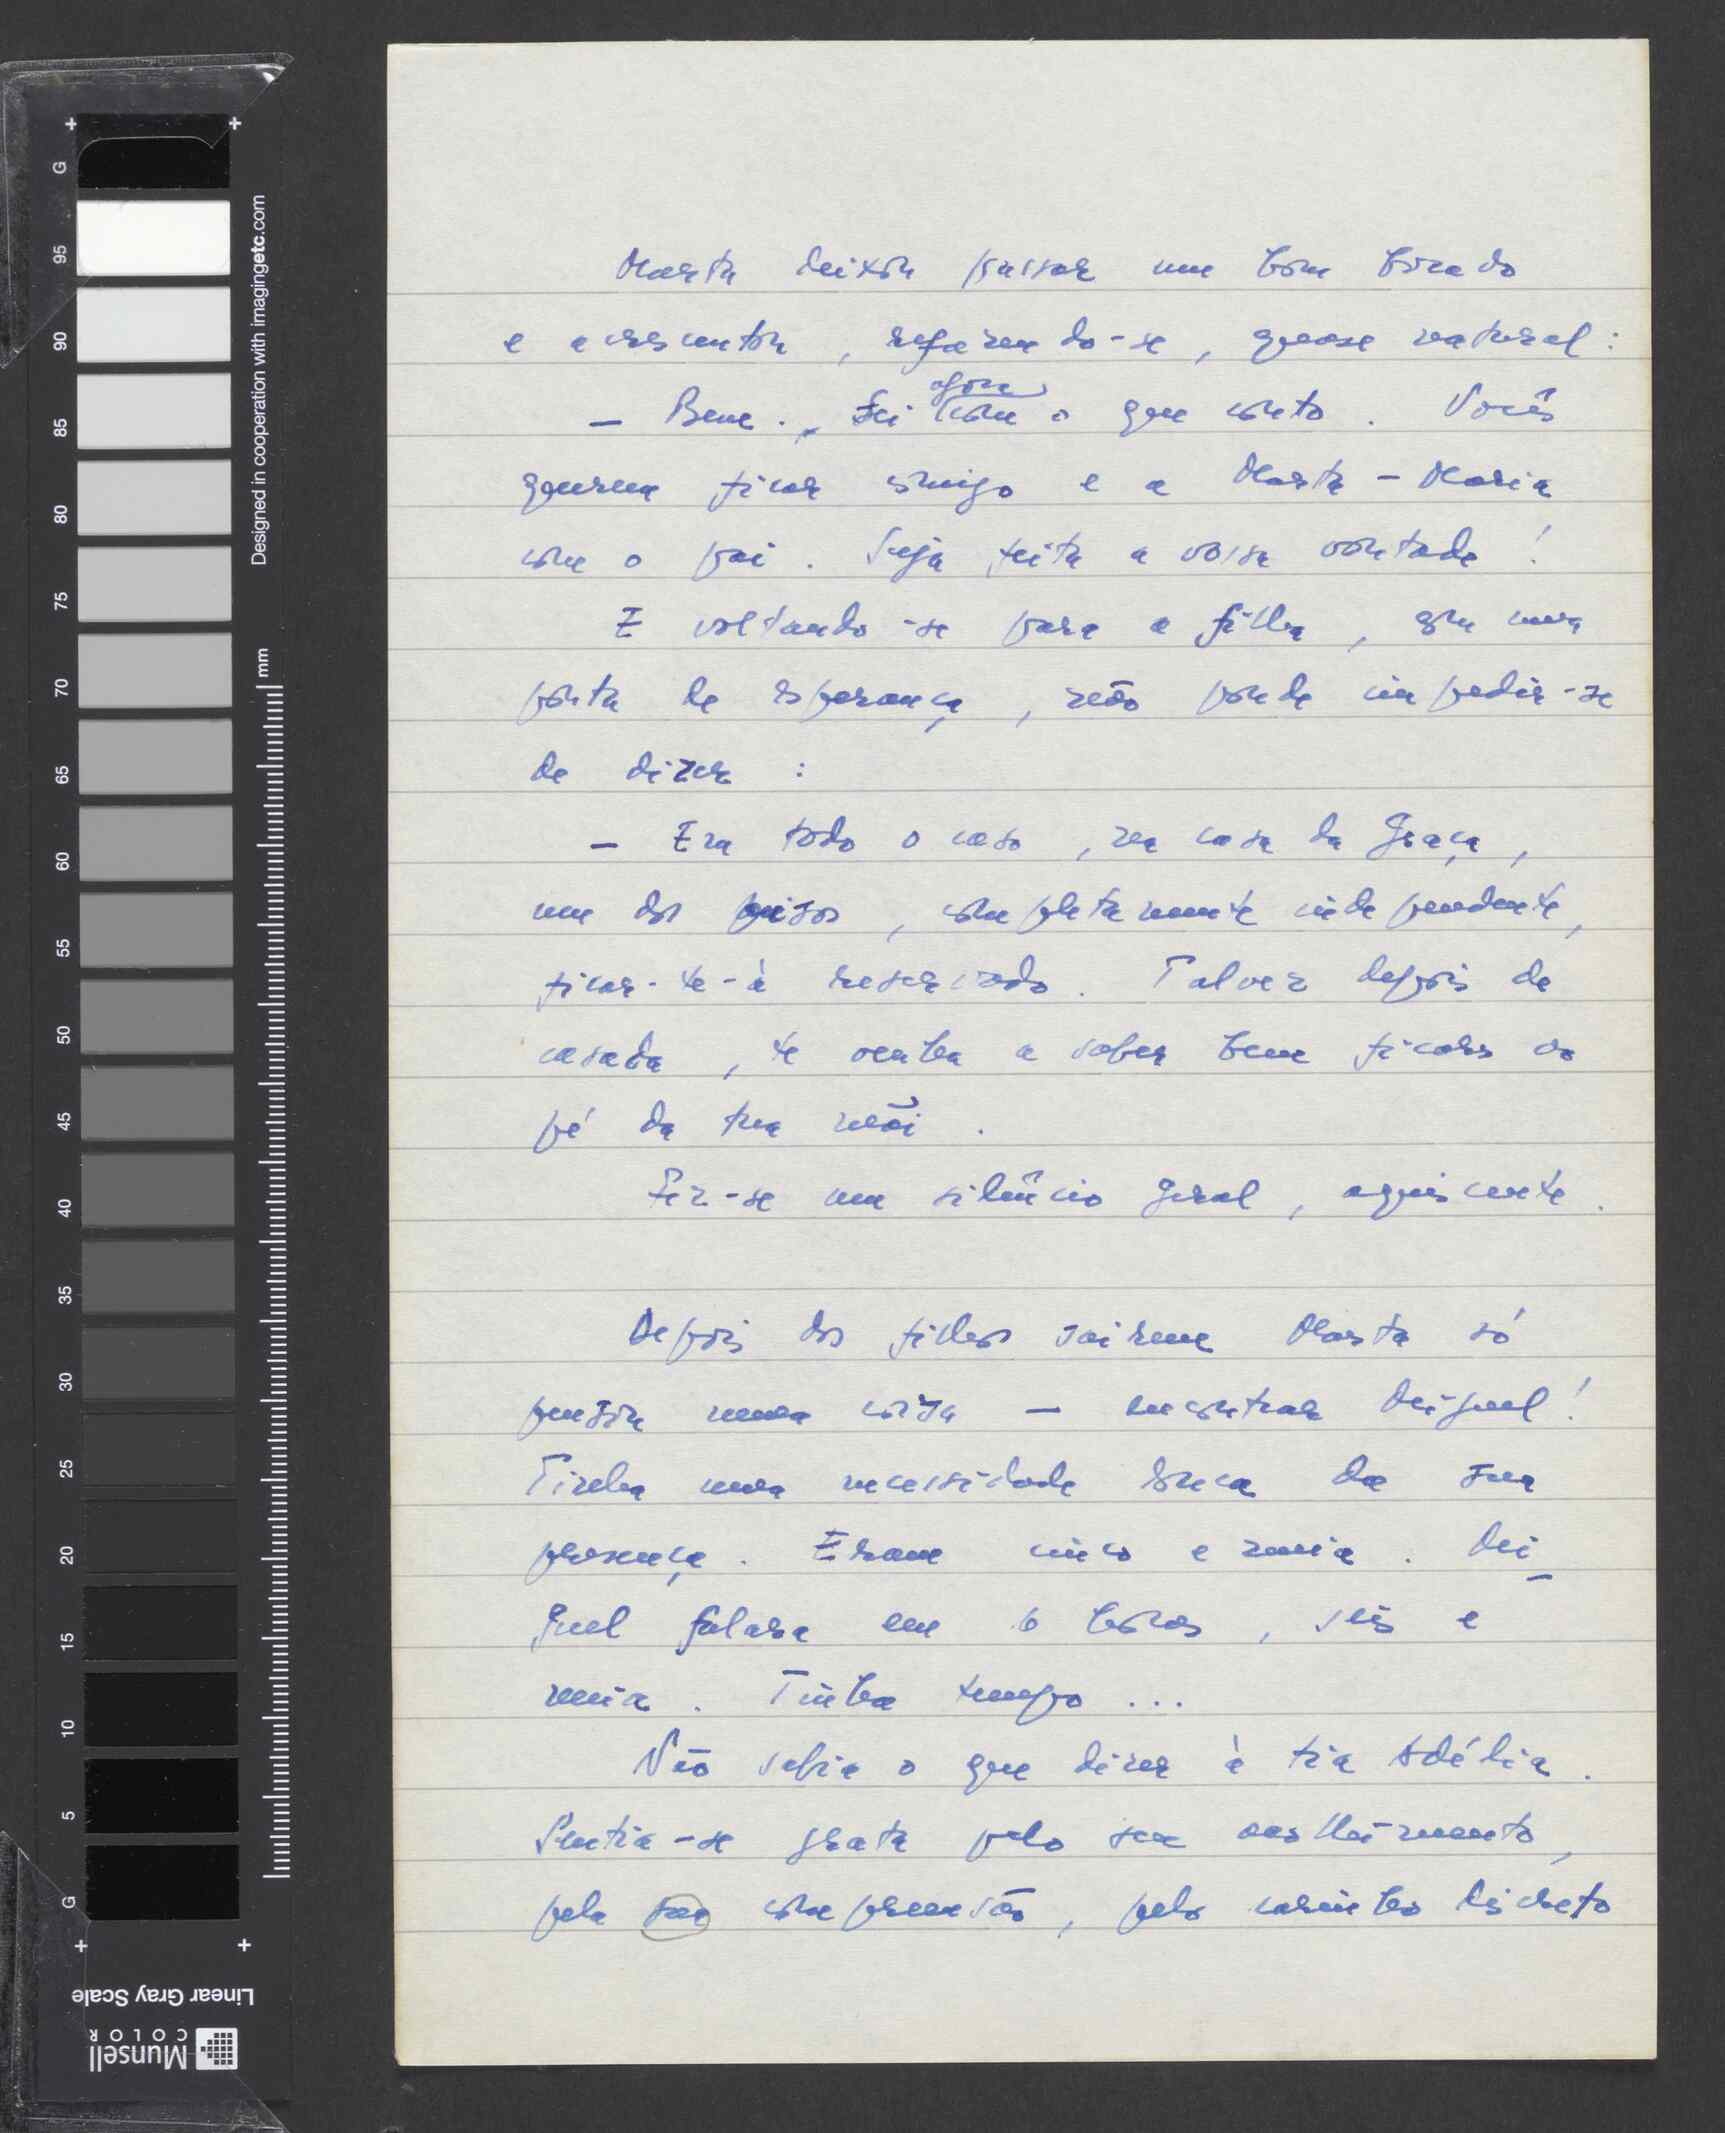 Marta deixou passar um bom bocado
e acrescentou, refazendo-se, quase natural:
— Bem. Sei agora com o que conto. Vocês
querem ficar comigo e a Marta-Maria
com o pai. Seja feita a vossa vontade!
E voltando-se para a filha, com uma
ponta de esperança, não poude impedir-se
de dizer:
— Em todo o caso, na casa da Graça,
um dos pisos, completamente independente,
ficar-te-à reservado. Talvez depois de
casada, te venha a saber bem ficares ao
pé da tua mãi.
Fez-se um silêncio geral, aquiescente.
Depois dos filhos sairem Marta só
pensou numa coisa — encontrar Miguel!
Tinha uma necessidade louca da sua
presença. Eram cinco e meia. Mi-
guel falara em 6 horas, seis e
meia. Tinha tempo...
Não sabia o que dizer à tia Adélia.
Sentia-se grata pelo seu acolhimento,
pela sua compreensão, pelo carinho discreto
G 95 90 85 80 75 70 65 60 55 50 45 40 35 30 25 20 15 10 5 G
Designed in cooperation with imagingetc.com
mm
Linear Gray Scale
Munsell
COLOR